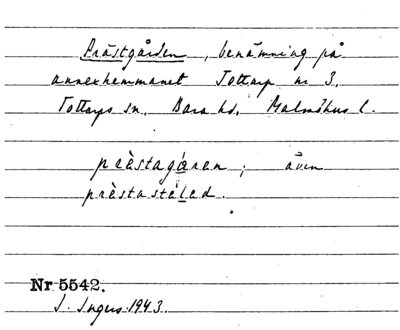 Prästgården, benämning på
annexhemmanet Tottarp nr 3,
Tottarps sn, Bara hd, Malmöhus l.
prèstagåren; även
prèstastéled.
Nr 5542.
I. Ingers 1943.